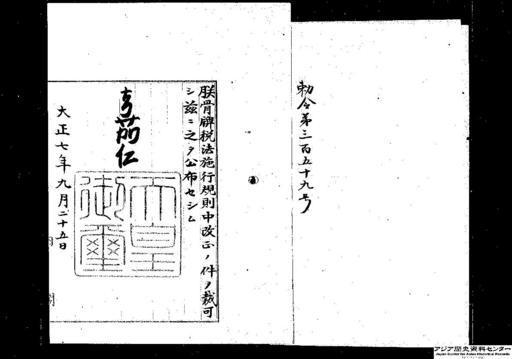 勅令第三百五十九号
朕骨牌税法施行規則中改正ノ件ヲ裁可
シ茲ニ之ヲ公布セシム
嘉仁
天皇御璽
大正七年九月二十五日
アジア歴史資料センター
Japan Center for Asian Historical Records